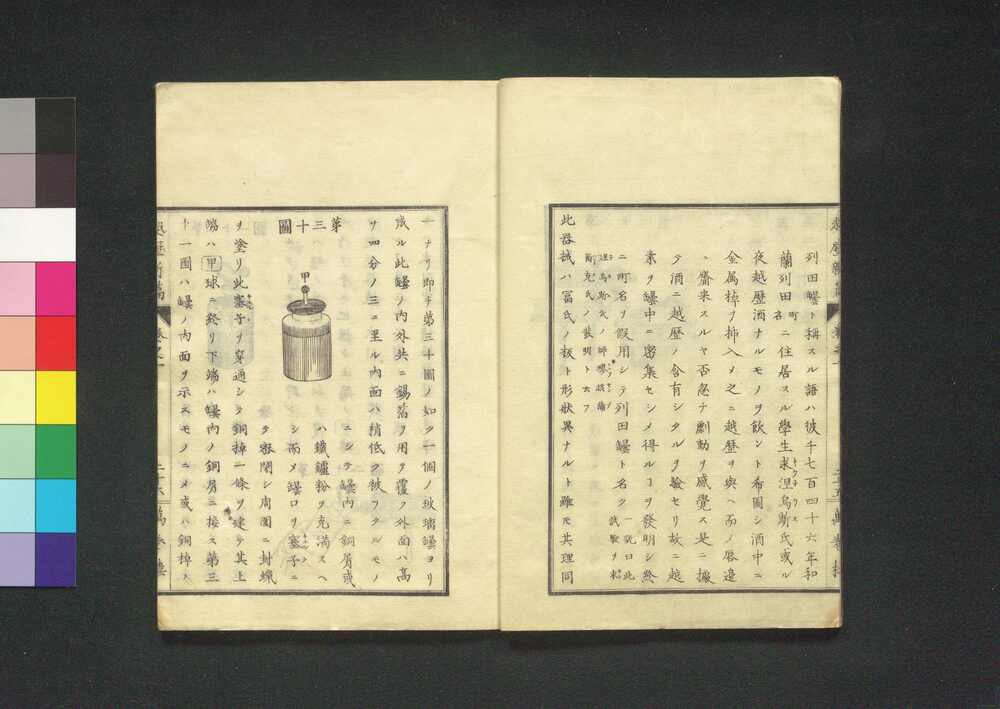 列田罎ト稱スル語ハ彼千七百四十六年和
蘭列田町名ニ住居スル學生求涅烏斯氏或ル
夜越歷酒ナルモノヲ飮ント希圖シ酒中ニ
金属棹ヲ揷入メ之ニ越歷ヲ與ヘ而ノ唇邉
ニ齎来スルヤ否忽チ劇動ヲ感覺ス是ニ據
テ酒ニ越歷ノ含有シタルヲ驗セリ故ニ越
素ヲ罎中ニ密集セシメ得ルヿヲ發明シ終
ニ町名ヲ假用シテ列田罎ト名ク一說曰此試驗ヲ求
涅烏斯氏ノ師
氏ノ發明ト云フ
此器械ハ冨氏ノ板ト形狀異ナルト雖モ其理同
一ナリ即チ第三十圖ノ如ク一個ノ玻璃罎ヨリ
成ル此罎ノ内外共ニ錫箔ヲ用テ覆フ外面ハ高
サ四分ノ三ニ至ル内面ハ稍低ク被フタルモノ
ニシテ罎内ニ銅屑或
ハ鐵鑪粉ヲ充滿スヘ
シ而メ罎口ヲ塞子ニ
テ密閉シ周圍ニ封蠟
第三十圖
甲
ヲ塗リ此塞子ヲ穿通シテ銅棹一條ヲ建テ其上
端ハ甲球ニ終リ下端ハ罎内ノ銅屑ニ接ス第三
十一圖ハ罎ノ内面ヲ示スモノニメ或ハ銅棹ス